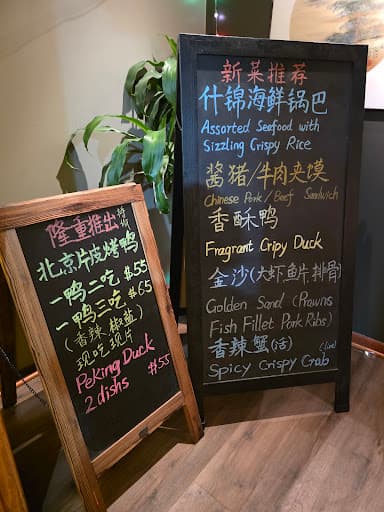 隆重推出
北京片皮烤鸭
一鸭二吃 $55
一鸭三吃 $65
(香辣,椒盐)
现吃现片
Peking Duck
2 dishs $55
新菜推荐
什锦海鲜锅巴
Assorted Seafood with
Sizzling Crispy Rice
酱猪/牛肉夹馍
Chinese Pork/Beef Sandwich
香酥鸭
Fragrant Cripy Duck
金沙(大虾,鱼片,排骨)
Golden Sand (Prawns
Fish Fillet Pork Ribs)
香辣蟹(活) (live)
Spicy Crispy Crab